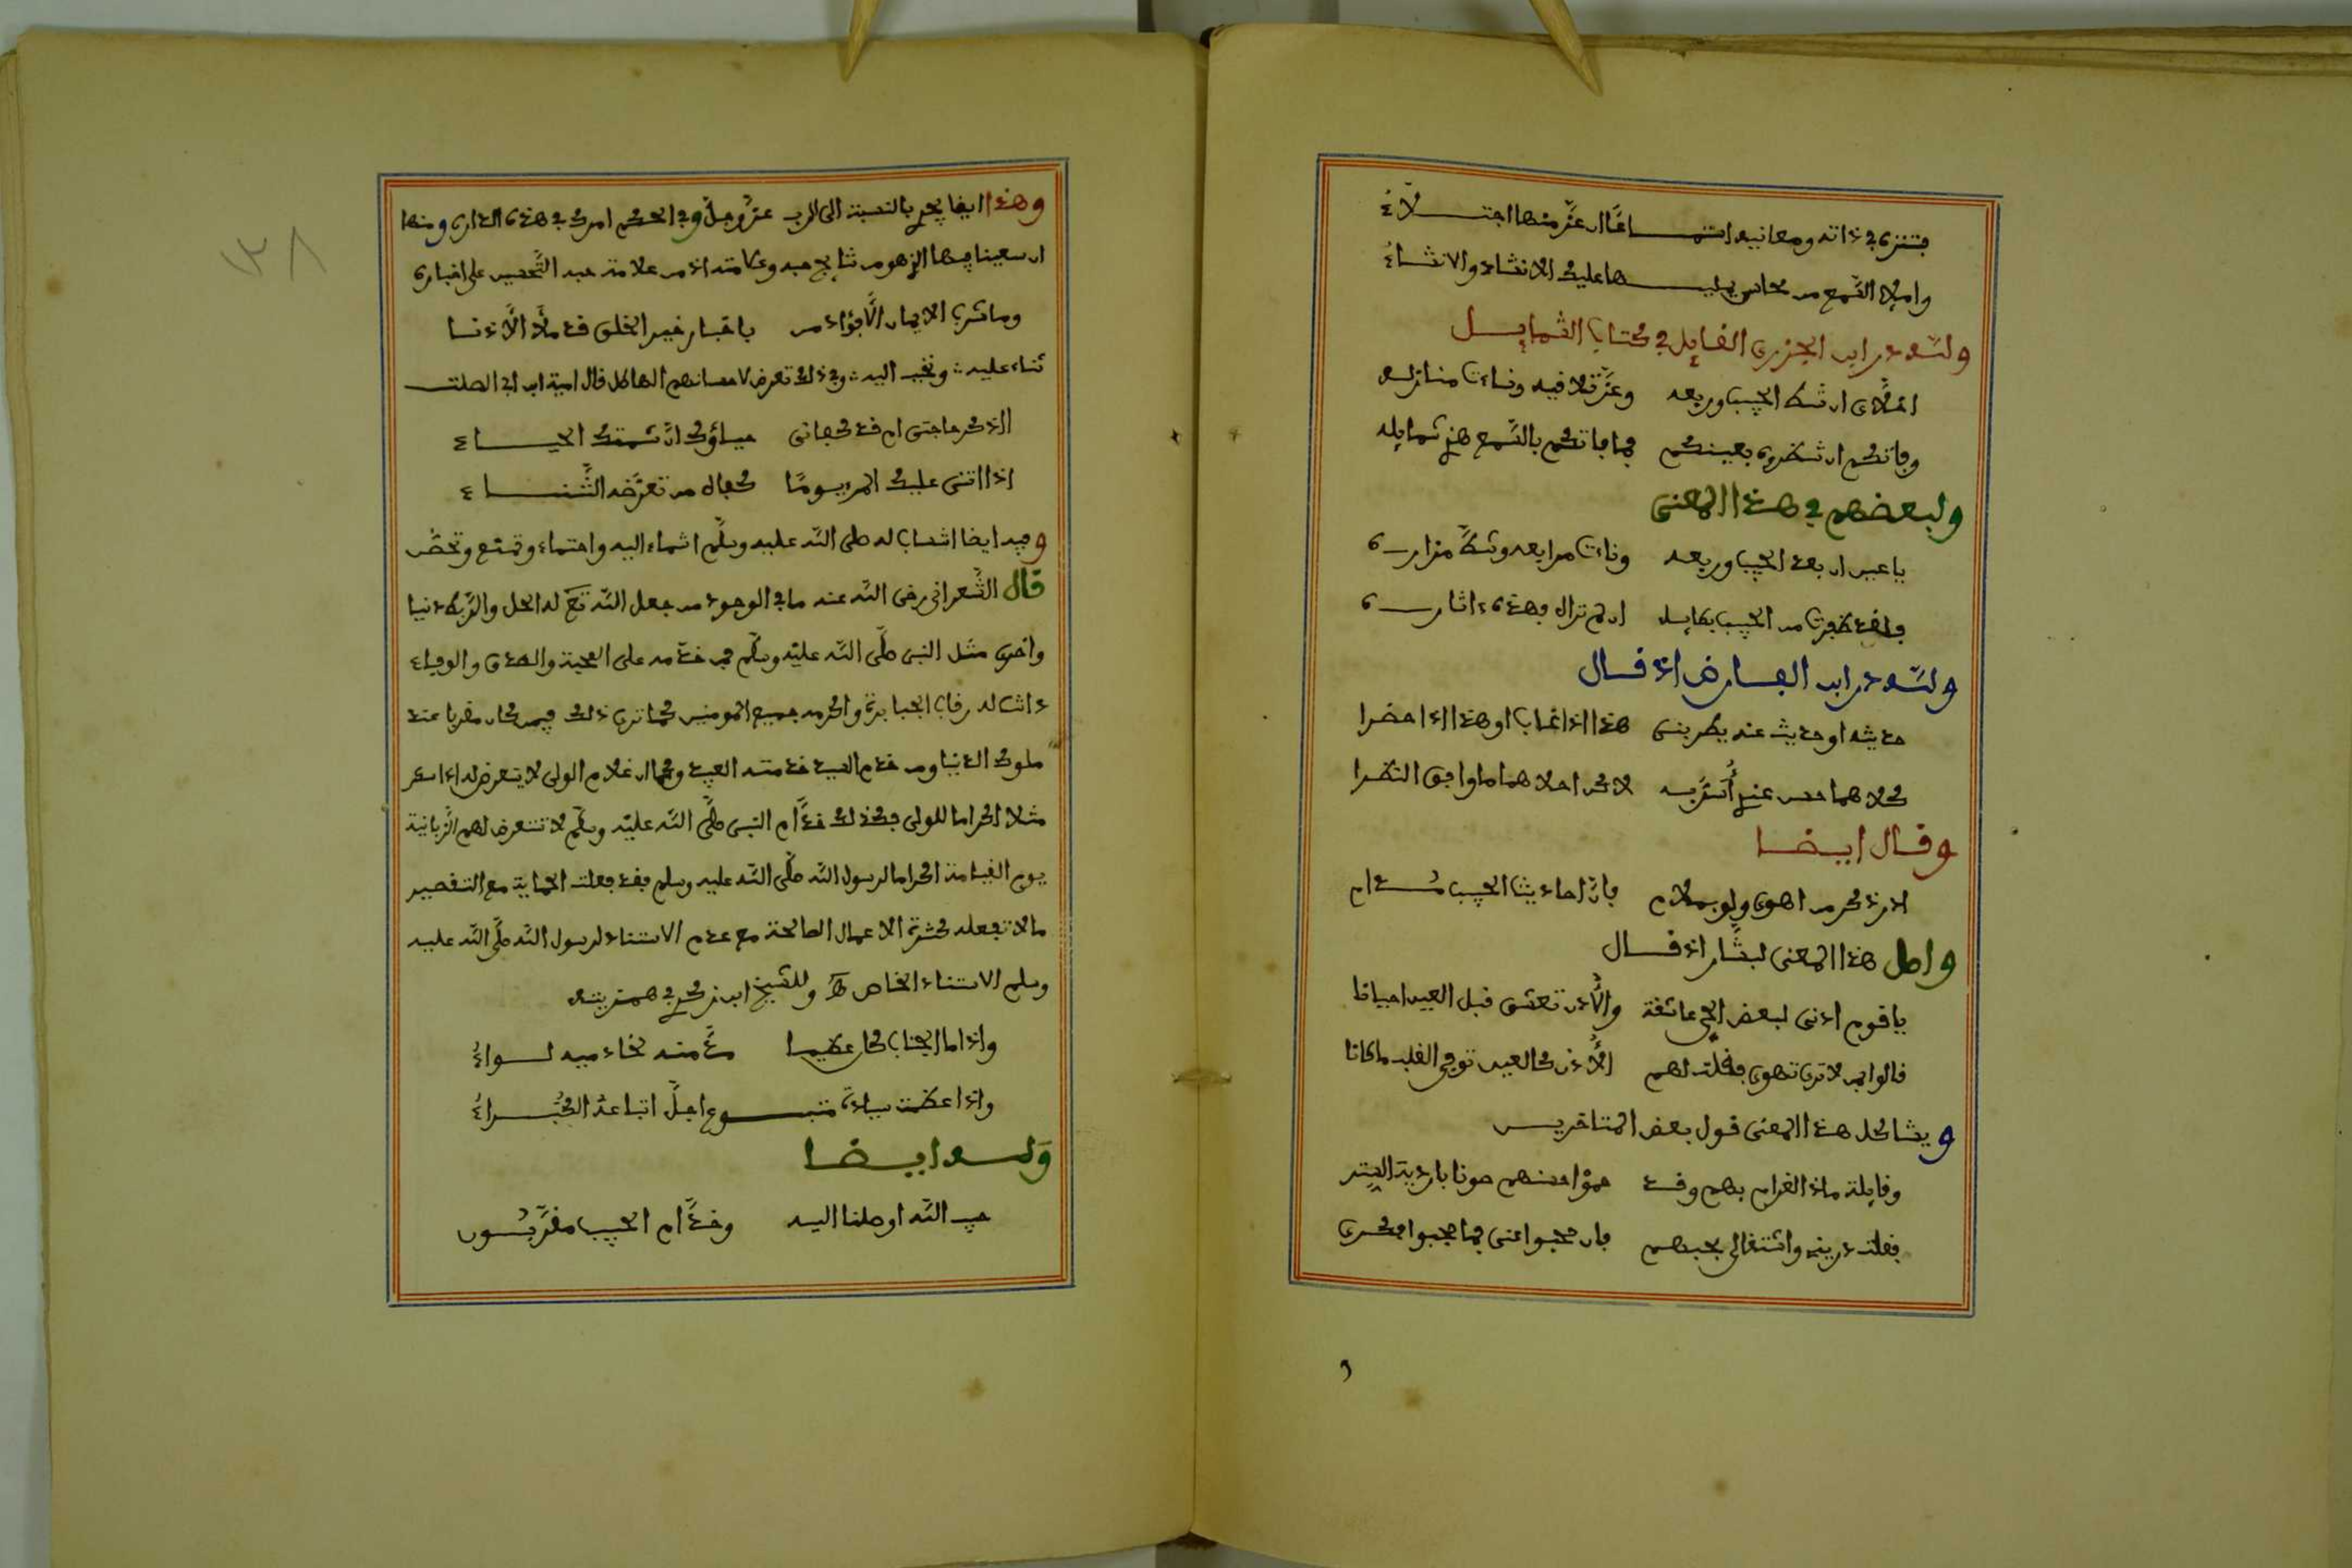 فتنزه في ذاته ومعانيه استماعا ان عز منها اجتلاء
واملا السمع من محاسن يمليها عليك الانشاد والانشاء
ولله در ابن الجزري القايل في كتاب الشمايل
اخلاي ان شط الحبيب وربعه وعز تلاقيه وناءت منازله
وفاتكم ان تنظروه بعينكم فما فاتكم بالسمع هذي شمايله
ولبعضهم في هذا المعنى
يا عين ان بعد الحبيب وربعه وناءت مرابعه وشط مزاره
فلقد ظفرت من الحبيب بطايل ان لم تراه فهذه ءاثاره
ولله در ابن الفارض اذ قال
حديثه او حديث عنه يطربني هذا اذا غاب او هذا اذا حضرا
كلاهما حسن عندي أسر به لاكن احلاهما ما وافق النظرا
وقال ايضا
ادر ذكر من اهوى ولو بملام فان احاديث الحبيب مدام
واصل هذا المعنى لبشار اذ قال
يا قوم اذني لبعض الحي عاشقة والأذن تعشق قبل العين احيانا
قالوا بمن لا ترى تهوى فقلت لهم الأذن كالعين توفي القلب ما كانا
ويشاكل هذا المعنى قول بعض المتاخرين
وقايلة ماذا الغرام بهم وقد حموا حسنهم صونا باردية الستر
فقلت دريني واشتغالي بحبهم فان حجبوا عني فما حجبوا فكري
وهذا ايضا يجري بالنسبة الى الرب عز وجل وفي الحكم امرك في هذه الدار ومنها
ان سعينا فيها الزهو من نتايج حبه وعلامته اذ من علامة حبه التحسين على اخباره
وما شرب الايمان الا فؤاد من باخبار خير الخلق قد ملأ الأذنا
ثناء عليه وتحبب اليه وفي ذلك تعرض لاحسانهم الهاطل قال امية ابن ابي الصلت
ااذكر حاجتي ام قد كفاني حياؤك ان شيمتك الحياء
اذا اثنى عليك المرء يوما كفاه من تعرضه الثناء
وفيه ايضا انتساب له صلى الله عليه وسلم انتماء اليه واحتماء وتمنع وتحصن
قال الشعراني رضي الله عنه ما في الوجود من جعل الله تع له الحل والربط دنيا
واخرى مثل النبي صلى الله عليه وسلم فمن خدمه على المحبة والصدق والوفاء
دانت له رقاب الجبابرة واكرمه جميع المومنين كما ترى ذلك فيمن كان مقربا عند
ملوك الدنيا ومن خدم السيد خدمته العبيد وكما ان غلام الوالي لا يتعرض له اذا سكر
مثلا اكراما للوالي فكذلك خدام النبي صلى الله عليه وسلم لا تتعرض لهم الزبانية
يوم القيامة اكراما لرسول الله صلى الله عليه وسلم فقد فعلت الحماية مع التقصير
ما لا تفعله كثرة الاعمال الصالحة مع عدم الاستناد لرسول الله صلى الله عليه
وسلم الاستناد الخاص وللشيخ ابن زكري في همزيته
واذا ما الجناب كان عظيما مد منه لخادميه لواء
واذا عظمت سيادة متبوع اجل اتباعه الكبراء
وله ايضا
حب الله اوصلنا اليه وخدام الحبيب مقربون
١٣٨